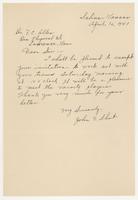 April 16, 1941
Dr. F. C. Allen
Lawrence, Kans
Dear Sir:
I shall be pleased to accept
your invitation to work out with
your team Saturday morning
at 10 o'clock. It will be a pleasure
to meet the varsity players.
Thank you very much for your
letter.
Very Sincerely,
John